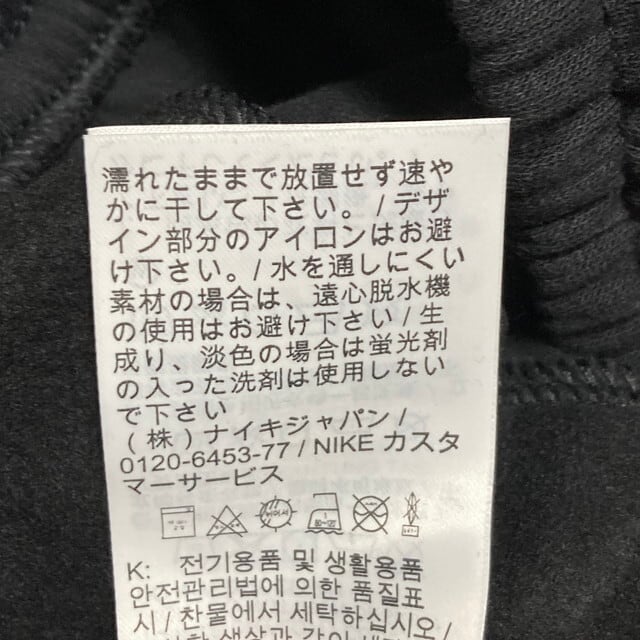 濡れたままで放置せず速や
かに干して下さい。/ デザ
イン部分のアイロンはお避
け下さい。/ 水を通しにくい
素材の場合は、遠心脱水機
の使用はお避け下さい / 生
成り、淡色の場合は蛍光剤
の入った洗剤は使用しない
で下さい
(株) ナイキジャパン /
0120-6453-77 / NIKE カスタ
マーサービス
K: 전기용품 및 생활용품
안전관리법에 의한 품질표
시 / 찬물에서 세탁하십시오 /